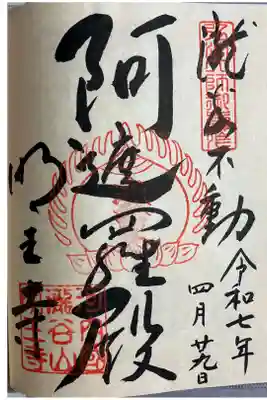 瀧谷不動
令和七年
四月廿九日
阿遮羅殿
明王寺
瀧谷山